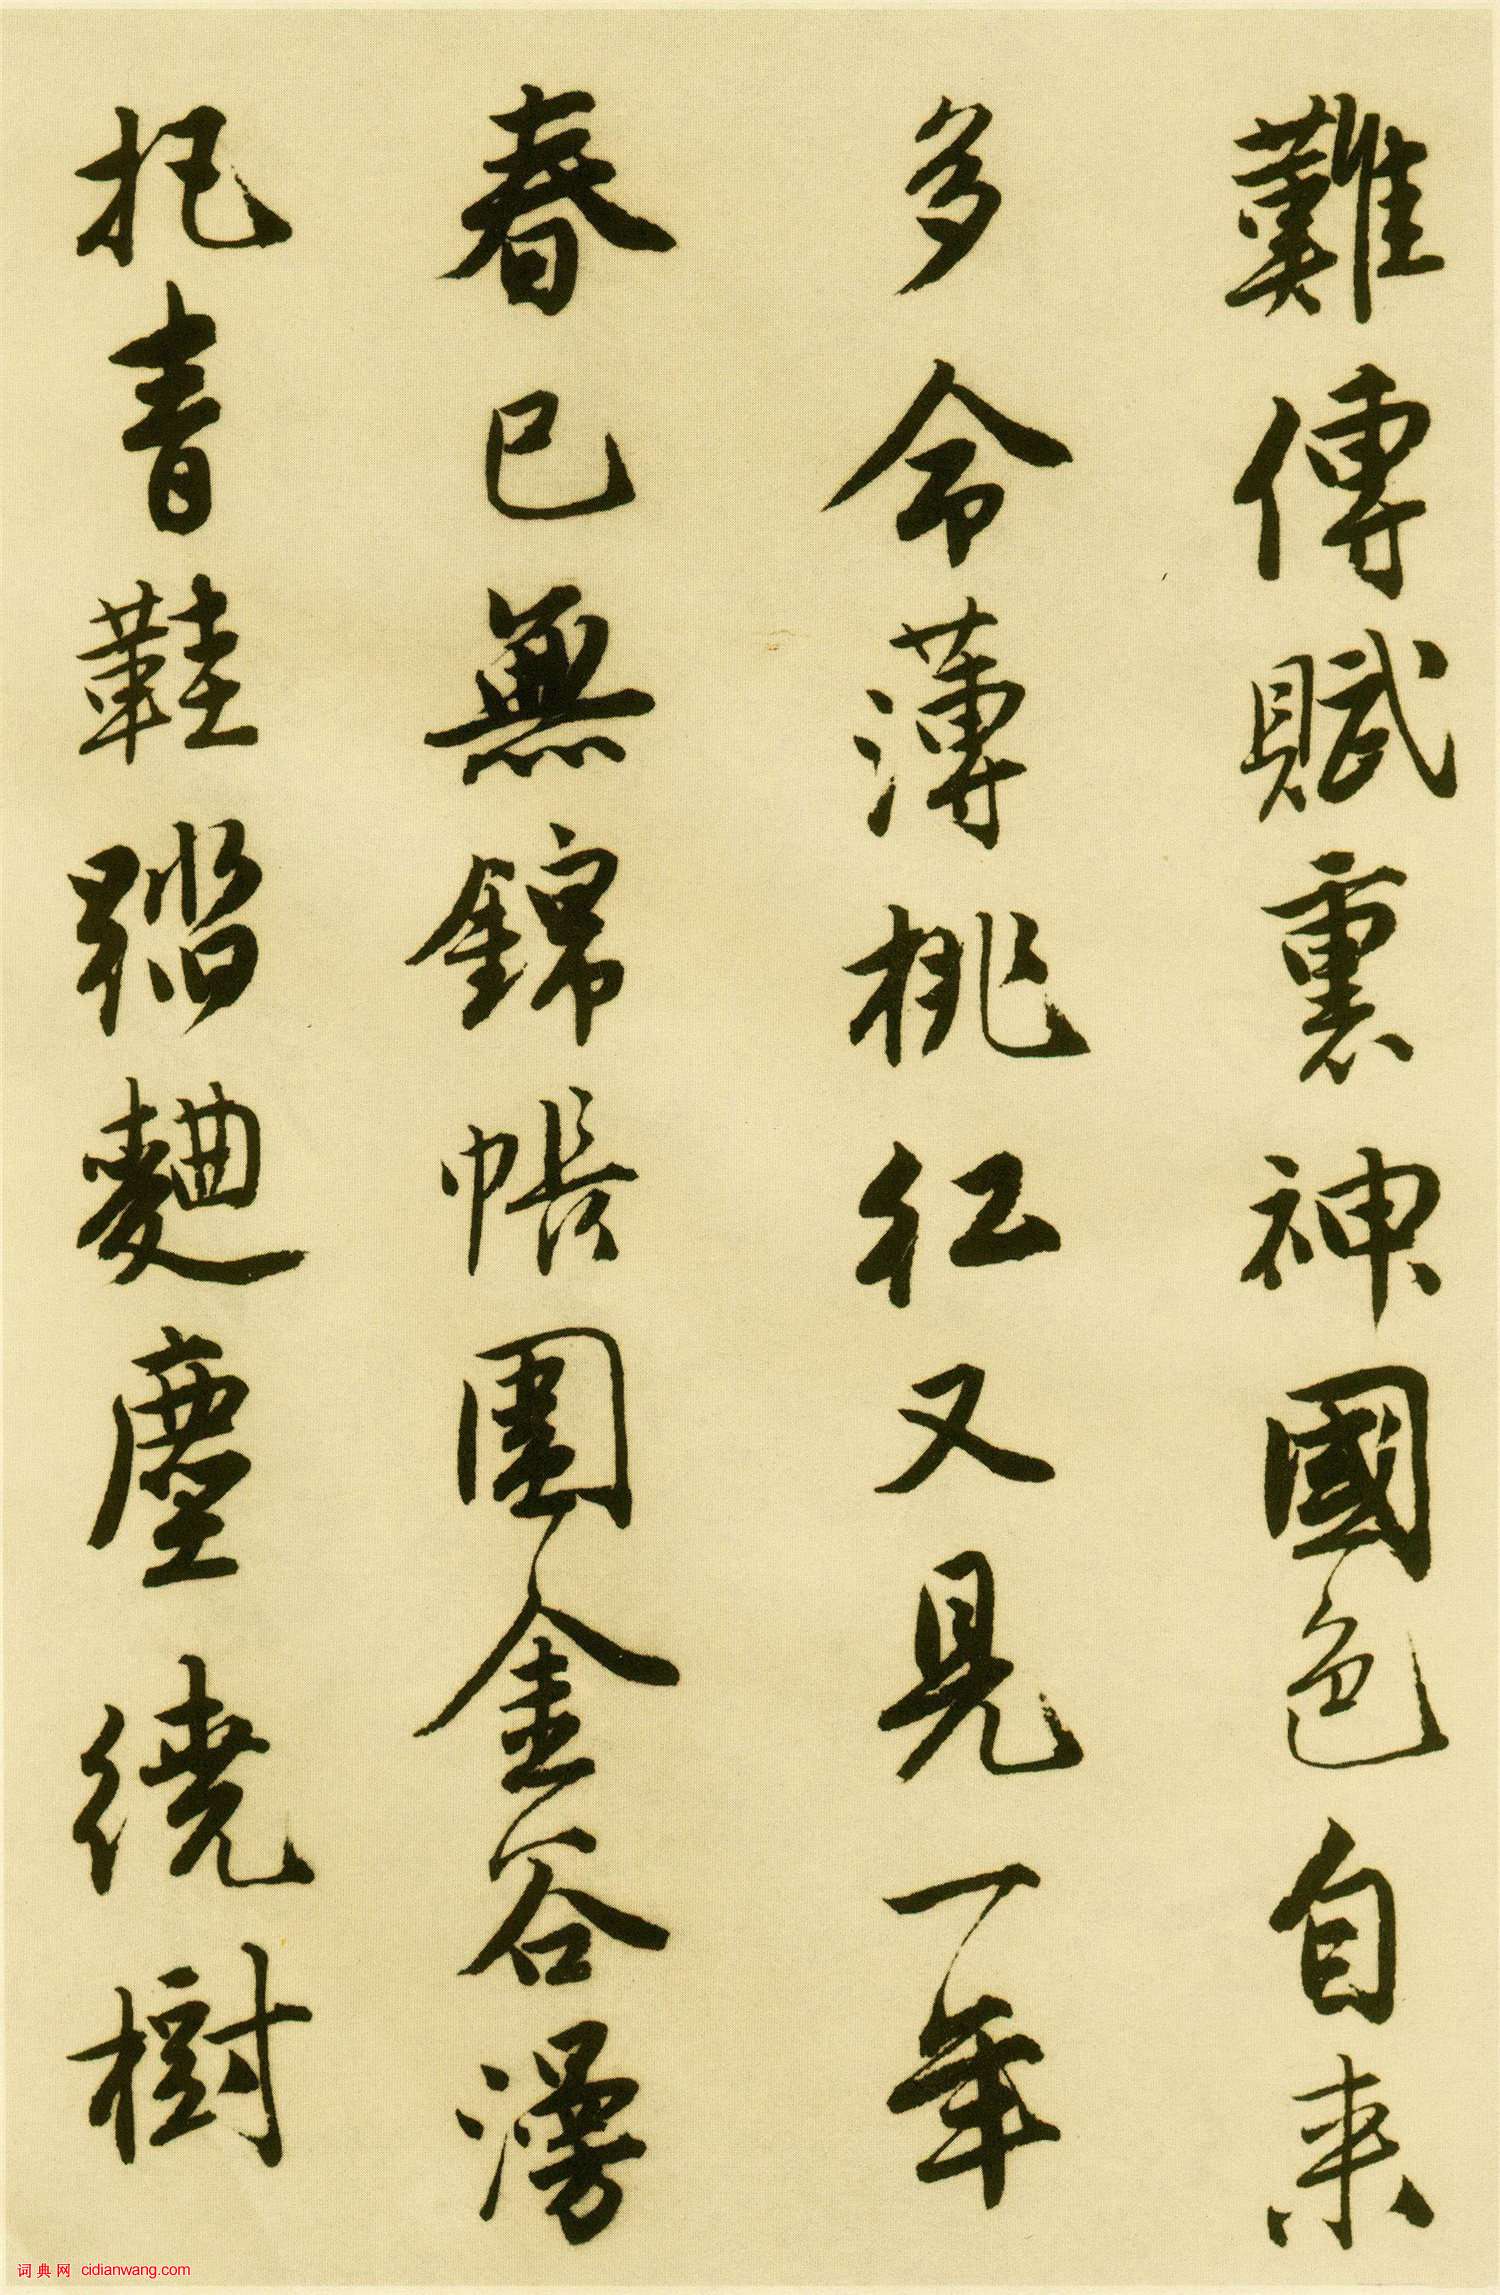 難傳賦裏神國色自来
多命薄桃紅又見一年
春已無錦帳圍金谷漫
把青鞋踏麯塵繞樹
词典网 cidianwang.com